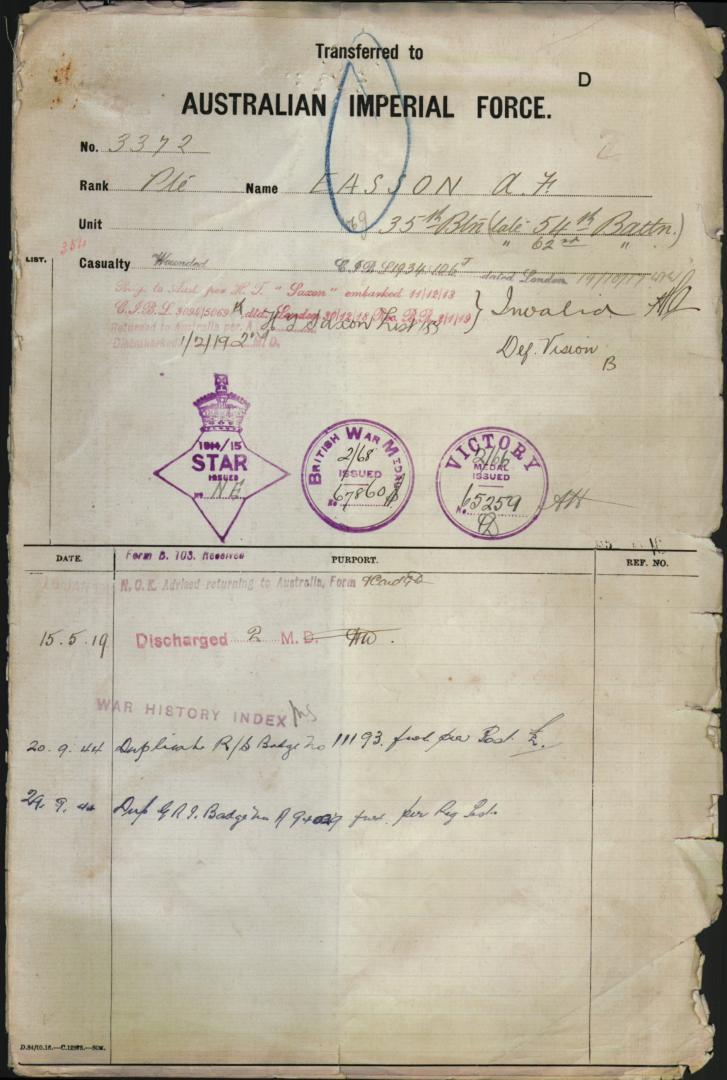 Transferred to
D
AUSTRALIAN IMPERIAL FORCE.
No. 3372
2
Rank Pte Name EASSON A. F.
Unit 35th Btn (late 54th Battn.)
" 62nd "
354
LIST.
Casualty Wounded C.I.B.L 1934/106 dated London 19/10/17
Rtg. to Aust per H.T. "Saxon" embarked 11/12/18
C.I.B.L. 3095/5069 dtd. London 30/12/18 2/1/19 } Invalid
Returned to Australia per H.T. Saxon List
Disembarked 1/2/19 2nd M.D.
Def. Vision
B
1914/15
STAR
ISSUED
No N.E.
BRITISH WAR MEDAL
2/68
ISSUED
No. 67860
VICTORY
2/66
MEDAL
ISSUED
No. 65259
DATE.
Form B. 103. Received
PURPORT.
REF. NO.
N.O.K. Advised returning to Australia, Form
15.5.19 Discharged 2 M.D.
WAR HISTORY INDEX
20.9.44 Duplicate R/S Badge No 11193 fwd per Post
29.9.44 Dup G.A.I. Badge No A fwd. per Reg Post
D.84/10.16.—C.12878.—50M.